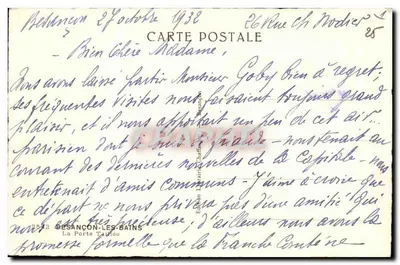 Besançon 27 octobre 1932 26 Rue Ch Nodier
25
CARTE POSTALE
Bien Chère Madame,
Nous avons laissé partir Monsieur Goby bien à regret;
ses fréquentes visites nous faisaient toujours grand
plaisir, et il nous apportait un peu de cet air
parisien dont je suis - nous tenait au
courant des dernières nouvelles de la Capitale - nous
entretenait d'amis communs - J'aime à croire que
ce départ ne nous privera pas d'une amitié qui
nous est très précieuse; d'ailleurs nous avons la
BESANÇON-LES-BAINS
La Porte Taillée
promesse formelle que la Franche Comtoise